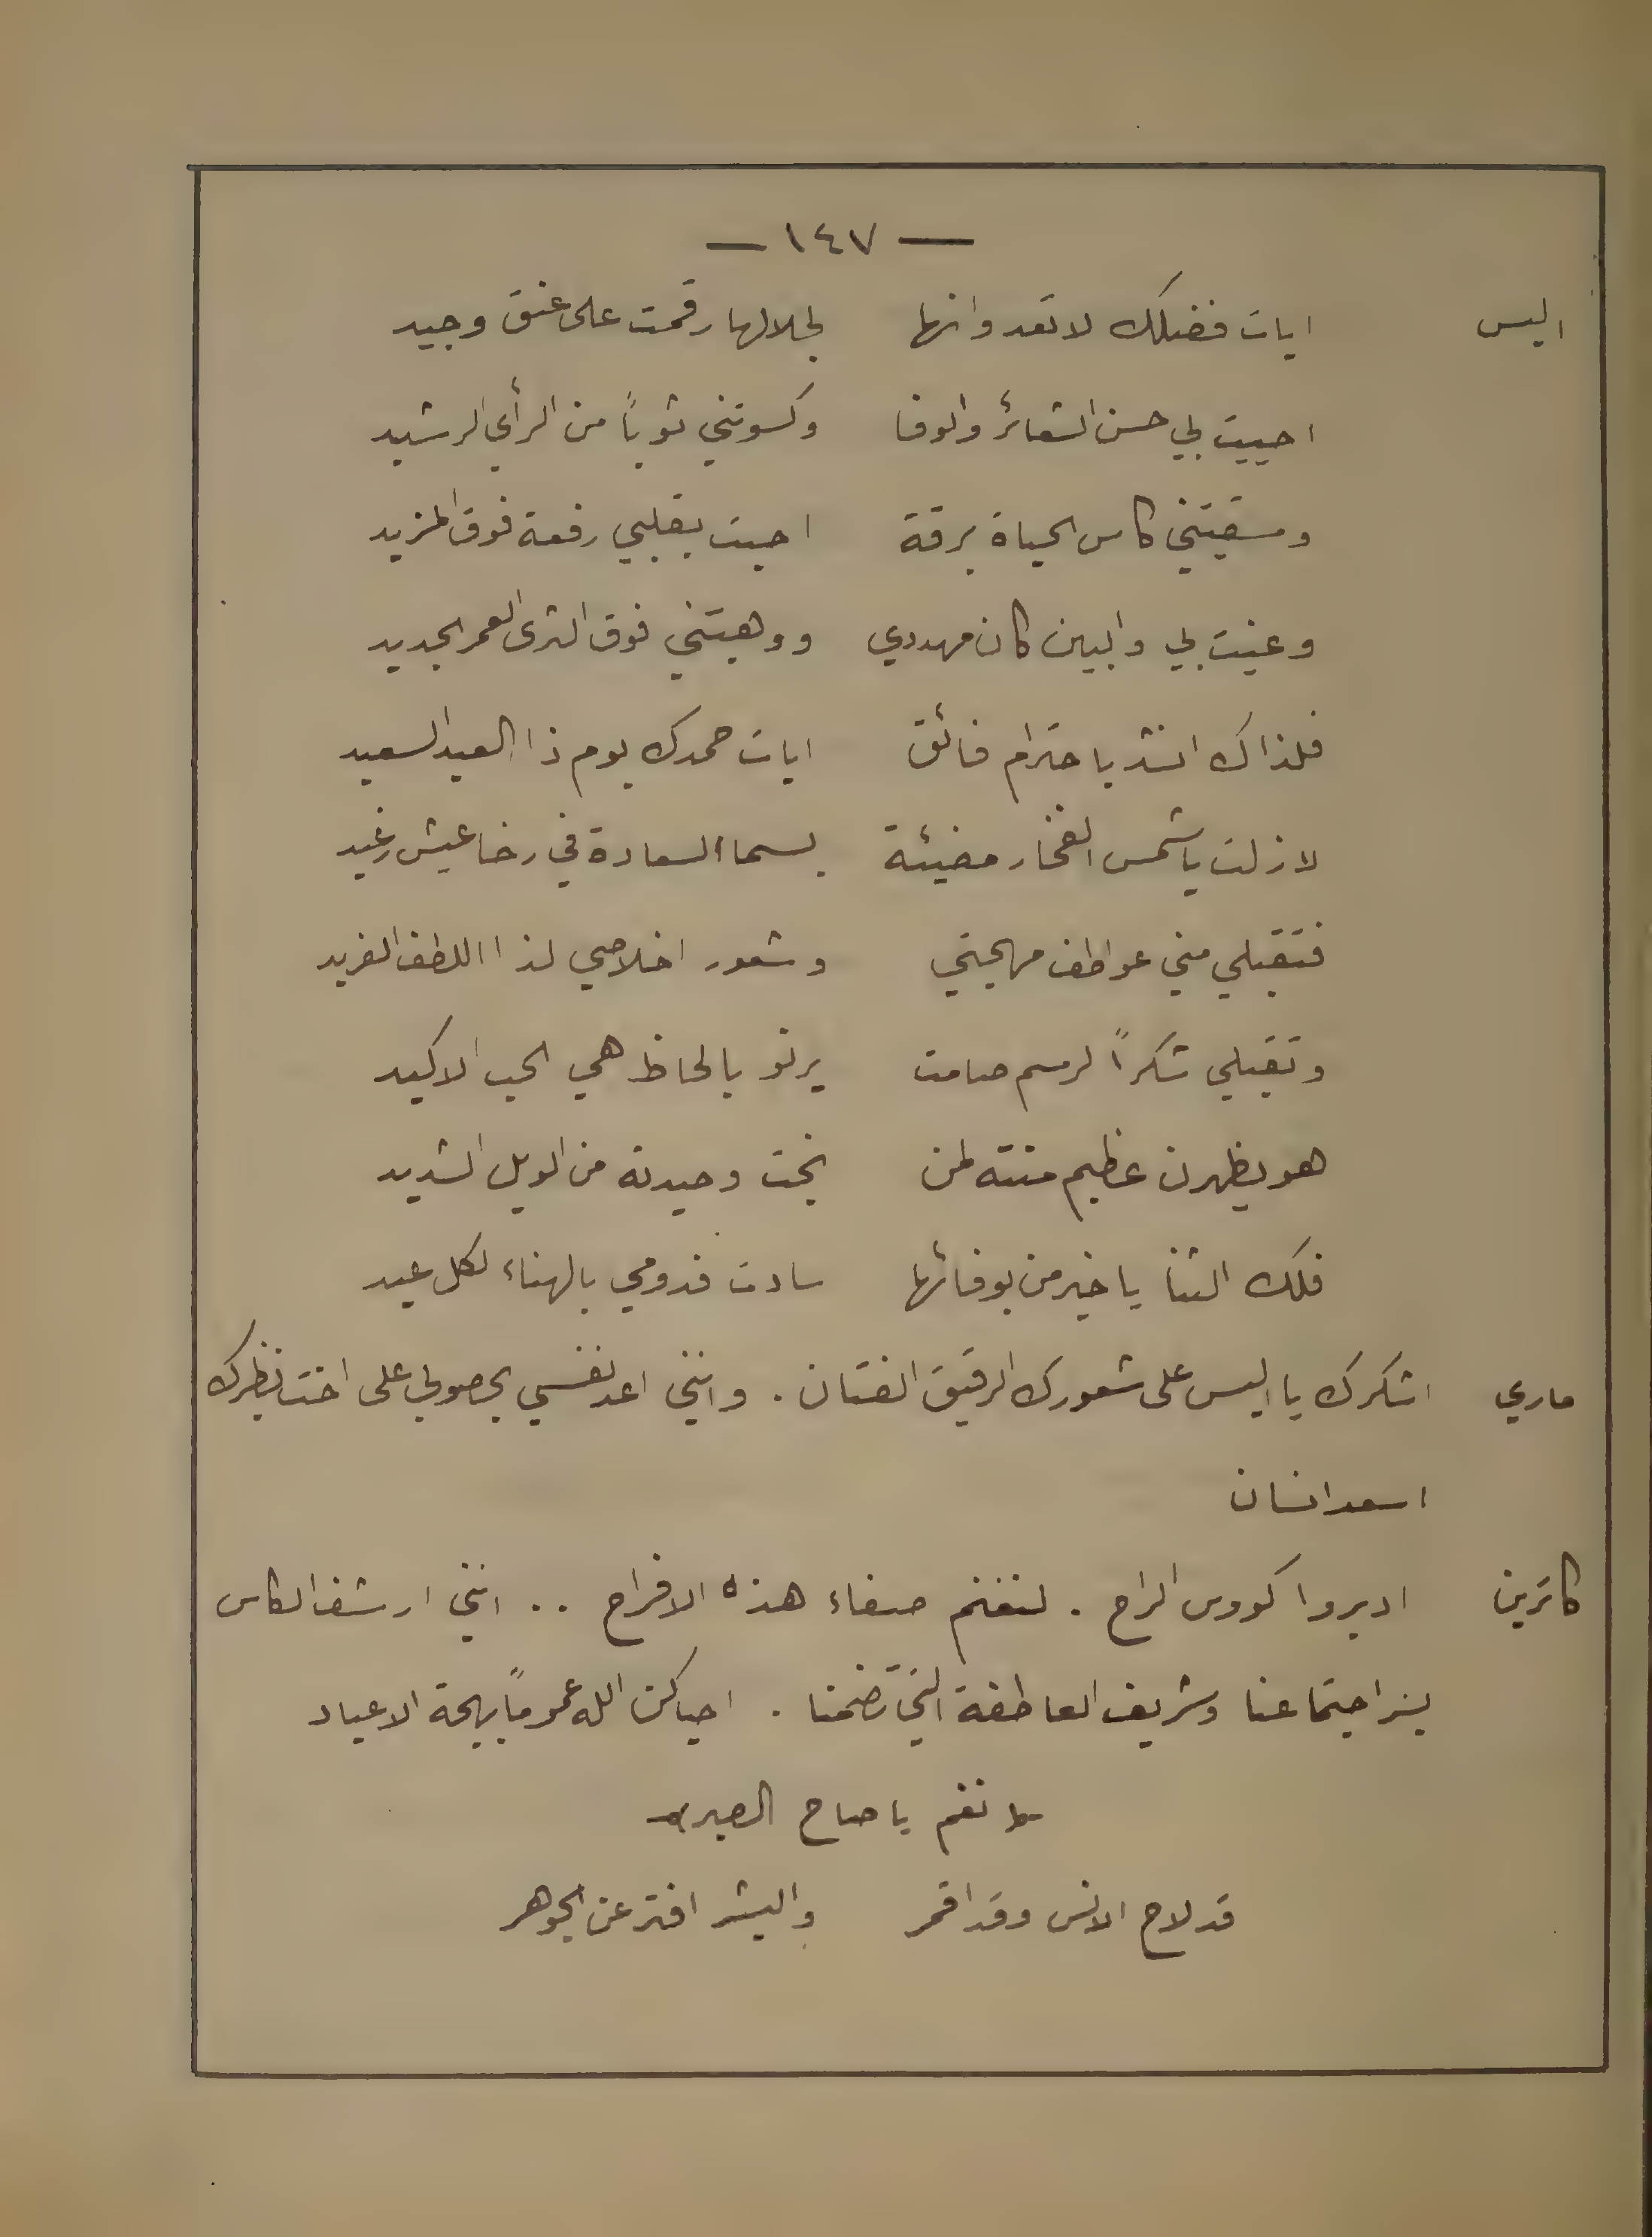 — ١٤٧ —
اليس ايات فضلك لا تعد وانها لجلالها رقمت على عنق وجيد
احييت لي حسن الشعائر والوفا وكسوتني ثوباً من الرأي الرشيد
وسقيتني كاس الحياة برقة احيت بقلبي رفعة فوق المزيد
وعنيت بي والبين كان مهددي ووهبتني فوق الثرى العمر الجديد
فلذاك انشد باحترام فائق ايات حمدك يوم ذا العيد السعيد
لازلت يا شمس الفخار مضيئة بسما السعادة في رخا عيش رغيد
فتقبلي مني عواطف مهجتي وشعور اخلاصي لذا اللطف الفريد
وتقبلي شكراً لرسم صامت يرنو بالحاظ هي الحب الاكيد
هو يظهرن عظيم منته لمن نجت وحيدته من الويل الشديد
فلك الثنا يا خير من بوفائها سادت فدومي بالهناء لكل عيد
ماري اشكرك يا اليس على شعورك الرقيق الفتان . وانني اعد نفسي بحصولي على اخت نظيرك
اسعد انسان
كاترين اديروا كووس الراح . لنغنم صفاء هذه الافراح .. انني ارشف الكاس
بسر اجتماعنا وشريف العاطفة التي تضمنا . احياكن الله عموماً بهجة الاعياد
نغم يا صاح الصبر
قد لاح الانس وقد اقمر والبشر افتر عن الجوهر